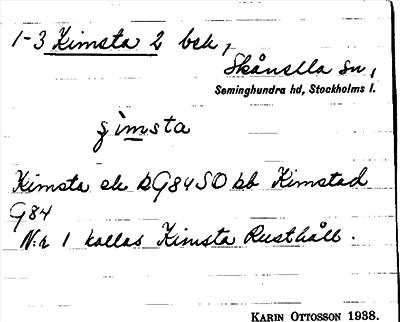 1-3 Kimsta 2 bsk,
Skånella sn,
Seminghundra hd, Stockholms l.
Kimsta ek G84 SO bb Kimstad
G84
N:r 1 kallas Kimsta Rusthåll.
KARIN OTTOSSON 1938.